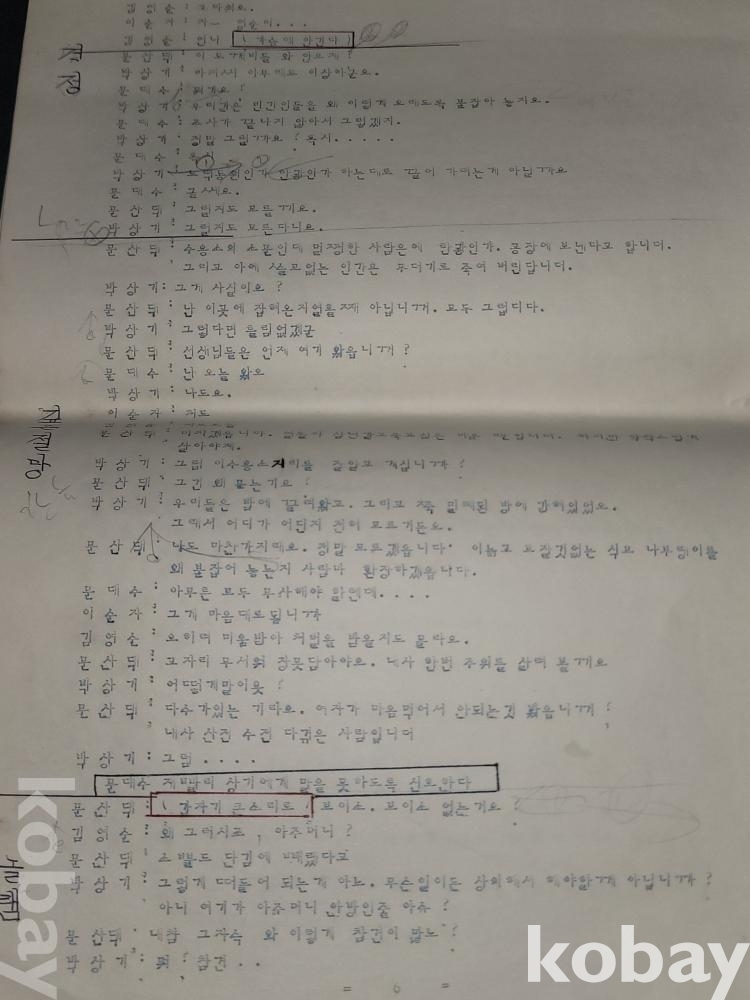 김영순 : 고마워요.
이순자 :
김영순 : 언니 ( 가슴에 안긴다 )
문산댁 : 이 도깨비들 와 안오제 ?
박상기 : 아저씨 이무래도 이상하군요.
문대수 : 뭐가요 ?
박상기 : 우리같은 민간인들을 왜 이렇게 오래도록 붙잡아 놓지요.
문대수 : 조사가 끝나지 않아서 그렇겠지.
박상기 : 정말 그럴까요 ? 혹시.....
문대수 : 혹시
박상기 : 노력동원인가 탄광인가 하는데로 끌어 가려는게 아닐까요
문대수 : 글쎄요.
문산댁 : 그럴지도 모를께요.
박상기 : 그럴지도 모른다니요.
문산댁 : 수용소의 소문인데 멀쩡한 사람은에 탄광인가. 공장에 보낸다고 합니더.
그리고 아예 쓸모없는 인간은 무더기로 죽여 버린답니더.
박상기 : 그게 사실이요 ?
문산댁 : 난 이곳에 잡혀온지열흘째 아닙니꺼. 모두 그럽디다.
박상기 : 그렇다면 틀림없겠군
문산댁 : 선생님들은 언제 여게 왔읍니꺼 ?
문대수 : 난 오늘 왔오
박상기 : 나도요.
이순자 : 저도
문산댁 :
살아야제.
박상기 : 그럼 이수용소지리를 좀알고 계십니까 ?
문산댁 : 그건 왜 묻는기요 ?
박상기 : 우리들은 밤에 끌려왔고. 그리고 쭉 밀폐된 방에 갇혀있었오.
그래서 어디가 어딘지 전혀 모르거든요.
문산댁 : 나도 마찬가지래요. 정말 모르겠읍니다. 이늙고 보잘것없는 식고 나부랭이를
왜 붙잡어 놓는지 사람마 환장하겠읍니다.
문대수 : 아무튼 모두 무사해야 할텐데....
이순자 : 그게 마음대로됩니까
김영순 : 오히려 미움받아 처벌을 받을지도 몰라요.
문산댁 : 꼬자리 무서워 장못담아야요. 내사 한번 주위를 살펴 볼께요
박상기 : 어떻게말이욧 ?
문산댁 : 다수가있는 기라요. 여자가 마음먹어서 안되는것 봤읍니꺼 ?
내사 산전 수전 다겪은 사람입니더
박상기 : 그럼 ....
문대수 재빨리 상기에게 말을 못하도록 신호한다
문산댁 : ( 갑자기 큰소리로 ) 보이소. 보이소 없는기요 ?
김영순 : 왜 그러시죠, 아주머니 ?
문산댁 : 소뿔도 단김에 빼랬다고
박상기 : 그렇게 떠들어 되는게 아뇨. 무슨일이든 상의해서 해야할게 아닙니까 ?
아니 여기가 아쥬머니 안방인줄 아슈 ?
문산댁 : 내참 그자슥 와 이렇게 참견이 많노 ?
박상기 : 뭐 ? 참견 ..
= 6 =
kobay
kobay